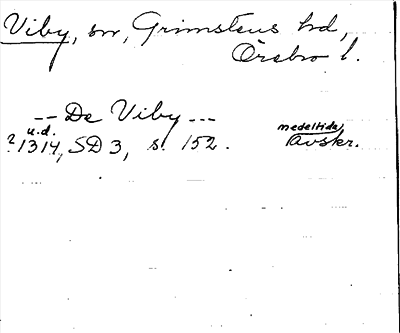 Viby, sn, Grimstens hd,
Örebro l.
-- De Viby ---
u.d. medeltida
? 1314, SD 3, s. 152. Avskr.